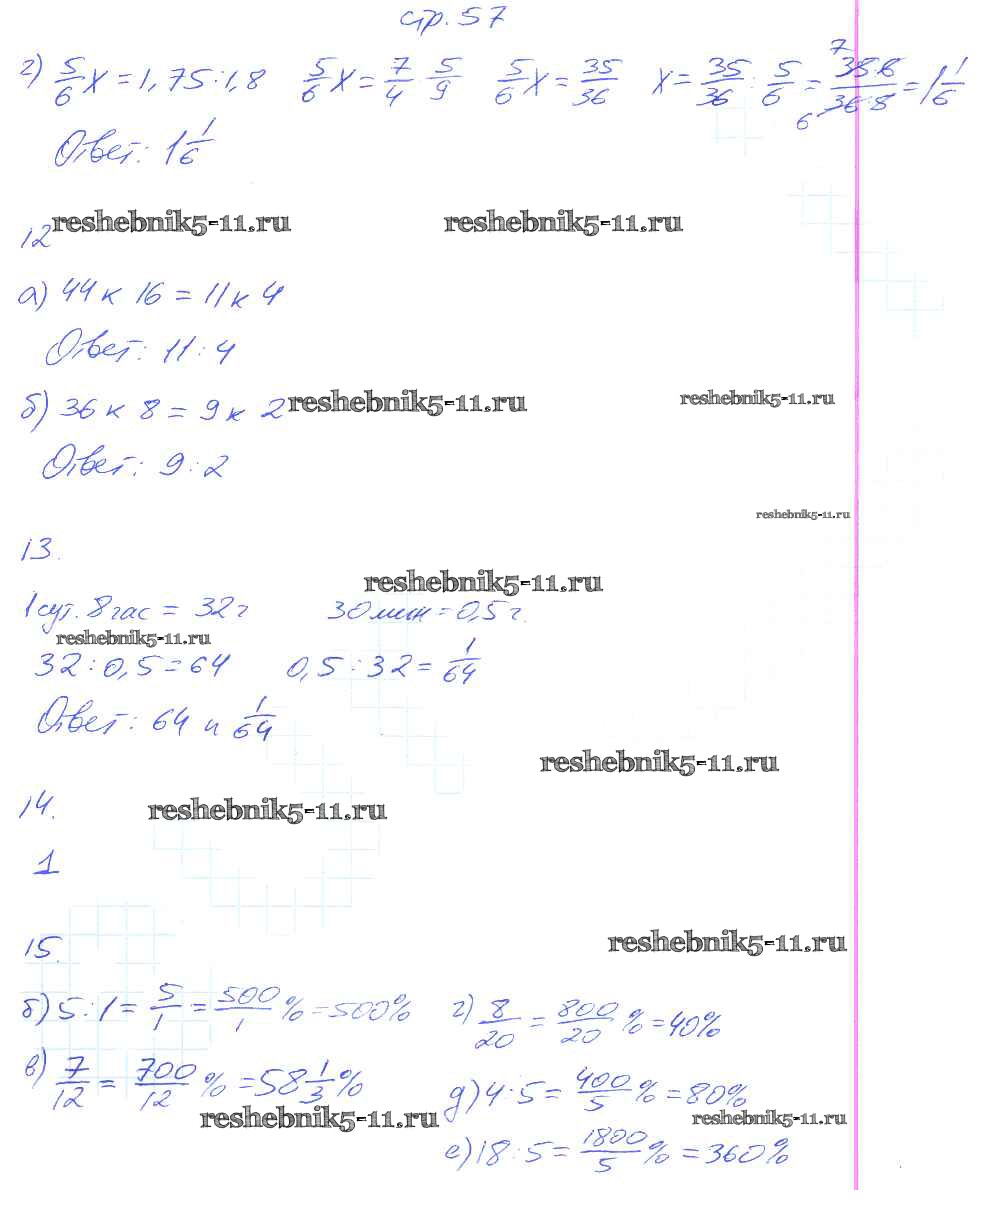 стр. 57
г) 5/6 x = 1,75 : 1,8   5/6 x = 7/4 · 5/9   5/6 x = 35/36   x = 35/36 : 5/6 = 7 35·6 / 6 36·8 = 1 1/6
Ответ: 1 1/6
reshebnik5-11.ru reshebnik5-11.ru
12
а) 44 к 16 = 11 к 4
Ответ: 11 : 4
б) 36 к 8 = 9 к 2 reshebnik5-11.ru reshebnik5-11.ru
Ответ: 9 : 2
reshebnik5-11.ru
13.
reshebnik5-11.ru
1 сут. 8 час = 32 ч   30 мин = 0,5 ч.
reshebnik5-11.ru
32 : 0,5 = 64   0,5 : 32 = 1/64
Ответ: 64 и 1/64
reshebnik5-11.ru
14. reshebnik5-11.ru
1
15. reshebnik5-11.ru
б) 5 : 1 = 5/1 = 500/1 % = 500%   г) 8/20 = 800/20 % = 40%
в) 7/12 = 700/12 % = 58 1/3 %   д) 4 : 5 = 400/5 % = 80%
reshebnik5-11.ru reshebnik5-11.ru
е) 18 : 5 = 1800/5 % = 360%